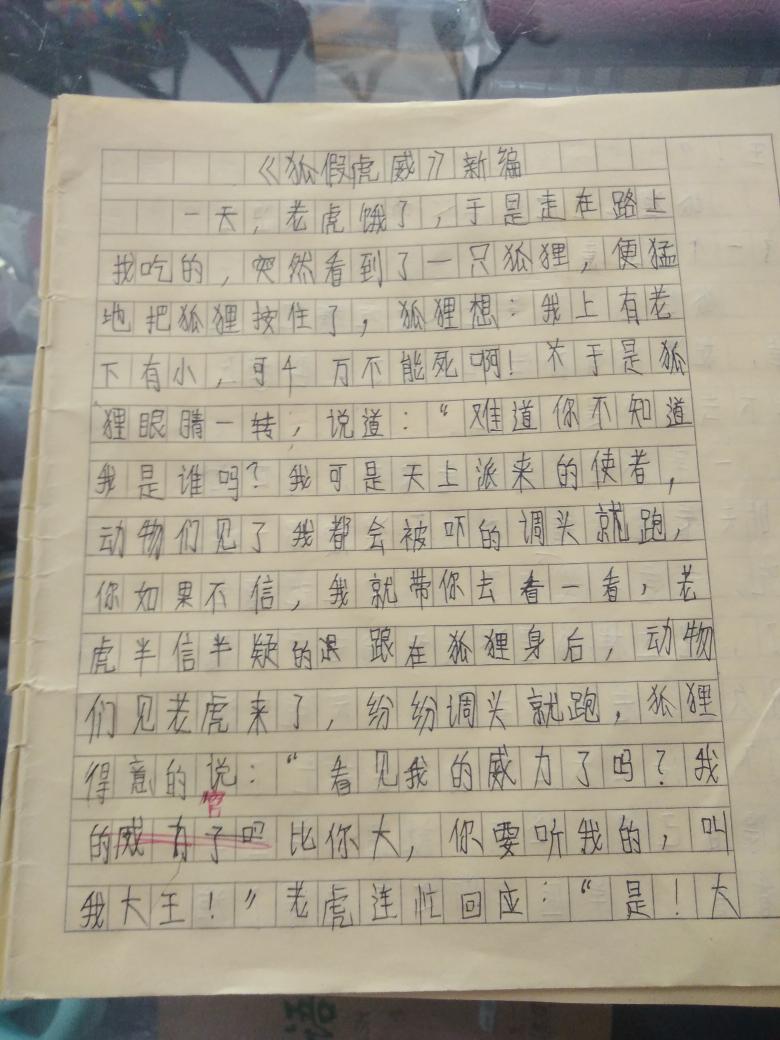 《狐假虎威》新编
一天，老虎饿了，于是走在路上
找吃的，突然看到了一只狐狸，便猛
地把狐狸按住了，狐狸想：我上有老
下有小，可千万不能死啊！于是狐
狸眼睛一转，说道：“难道你不知道
我是谁吗？我可是天上派来的使者，
动物们见了我都会被吓的调头就跑，
你如果不信，我就带你去看一看，老
虎半信半疑的跟在狐狸身后，动物
们见老虎来了，纷纷调头就跑，狐狸
得意的说：“看见我的威力了吗？我
官
的威力了吗比你大，你要听我的，叫
我大王！”老虎连忙回应：“是！大